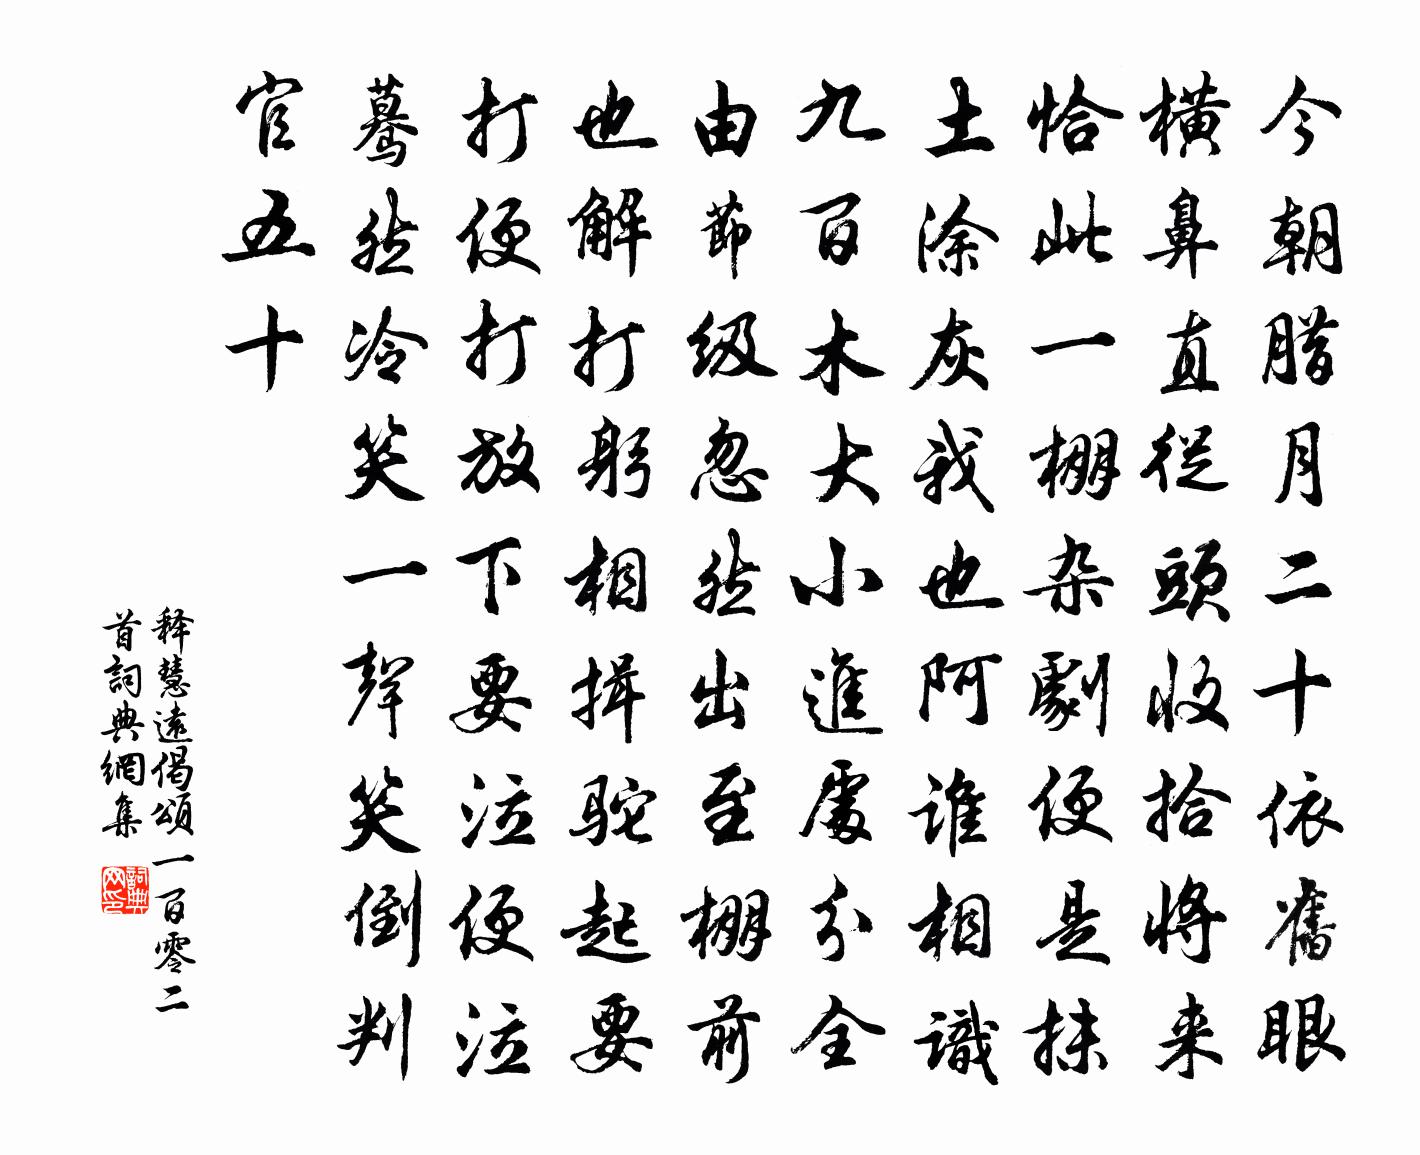 今朝腊月二十依舊眼
橫鼻直從頭收拾將来
恰此一棚杂劇便是抹
土涂灰我也阿谁相識
九百木大小進處分全
由節级忽然出至棚前
也解打躬相揖駝起要
打便打放下要泣便泣
蓦然冷笑一聲笑倒判
官五十
释慧遠偈頌一百零二
首詞典網集
詞典网印